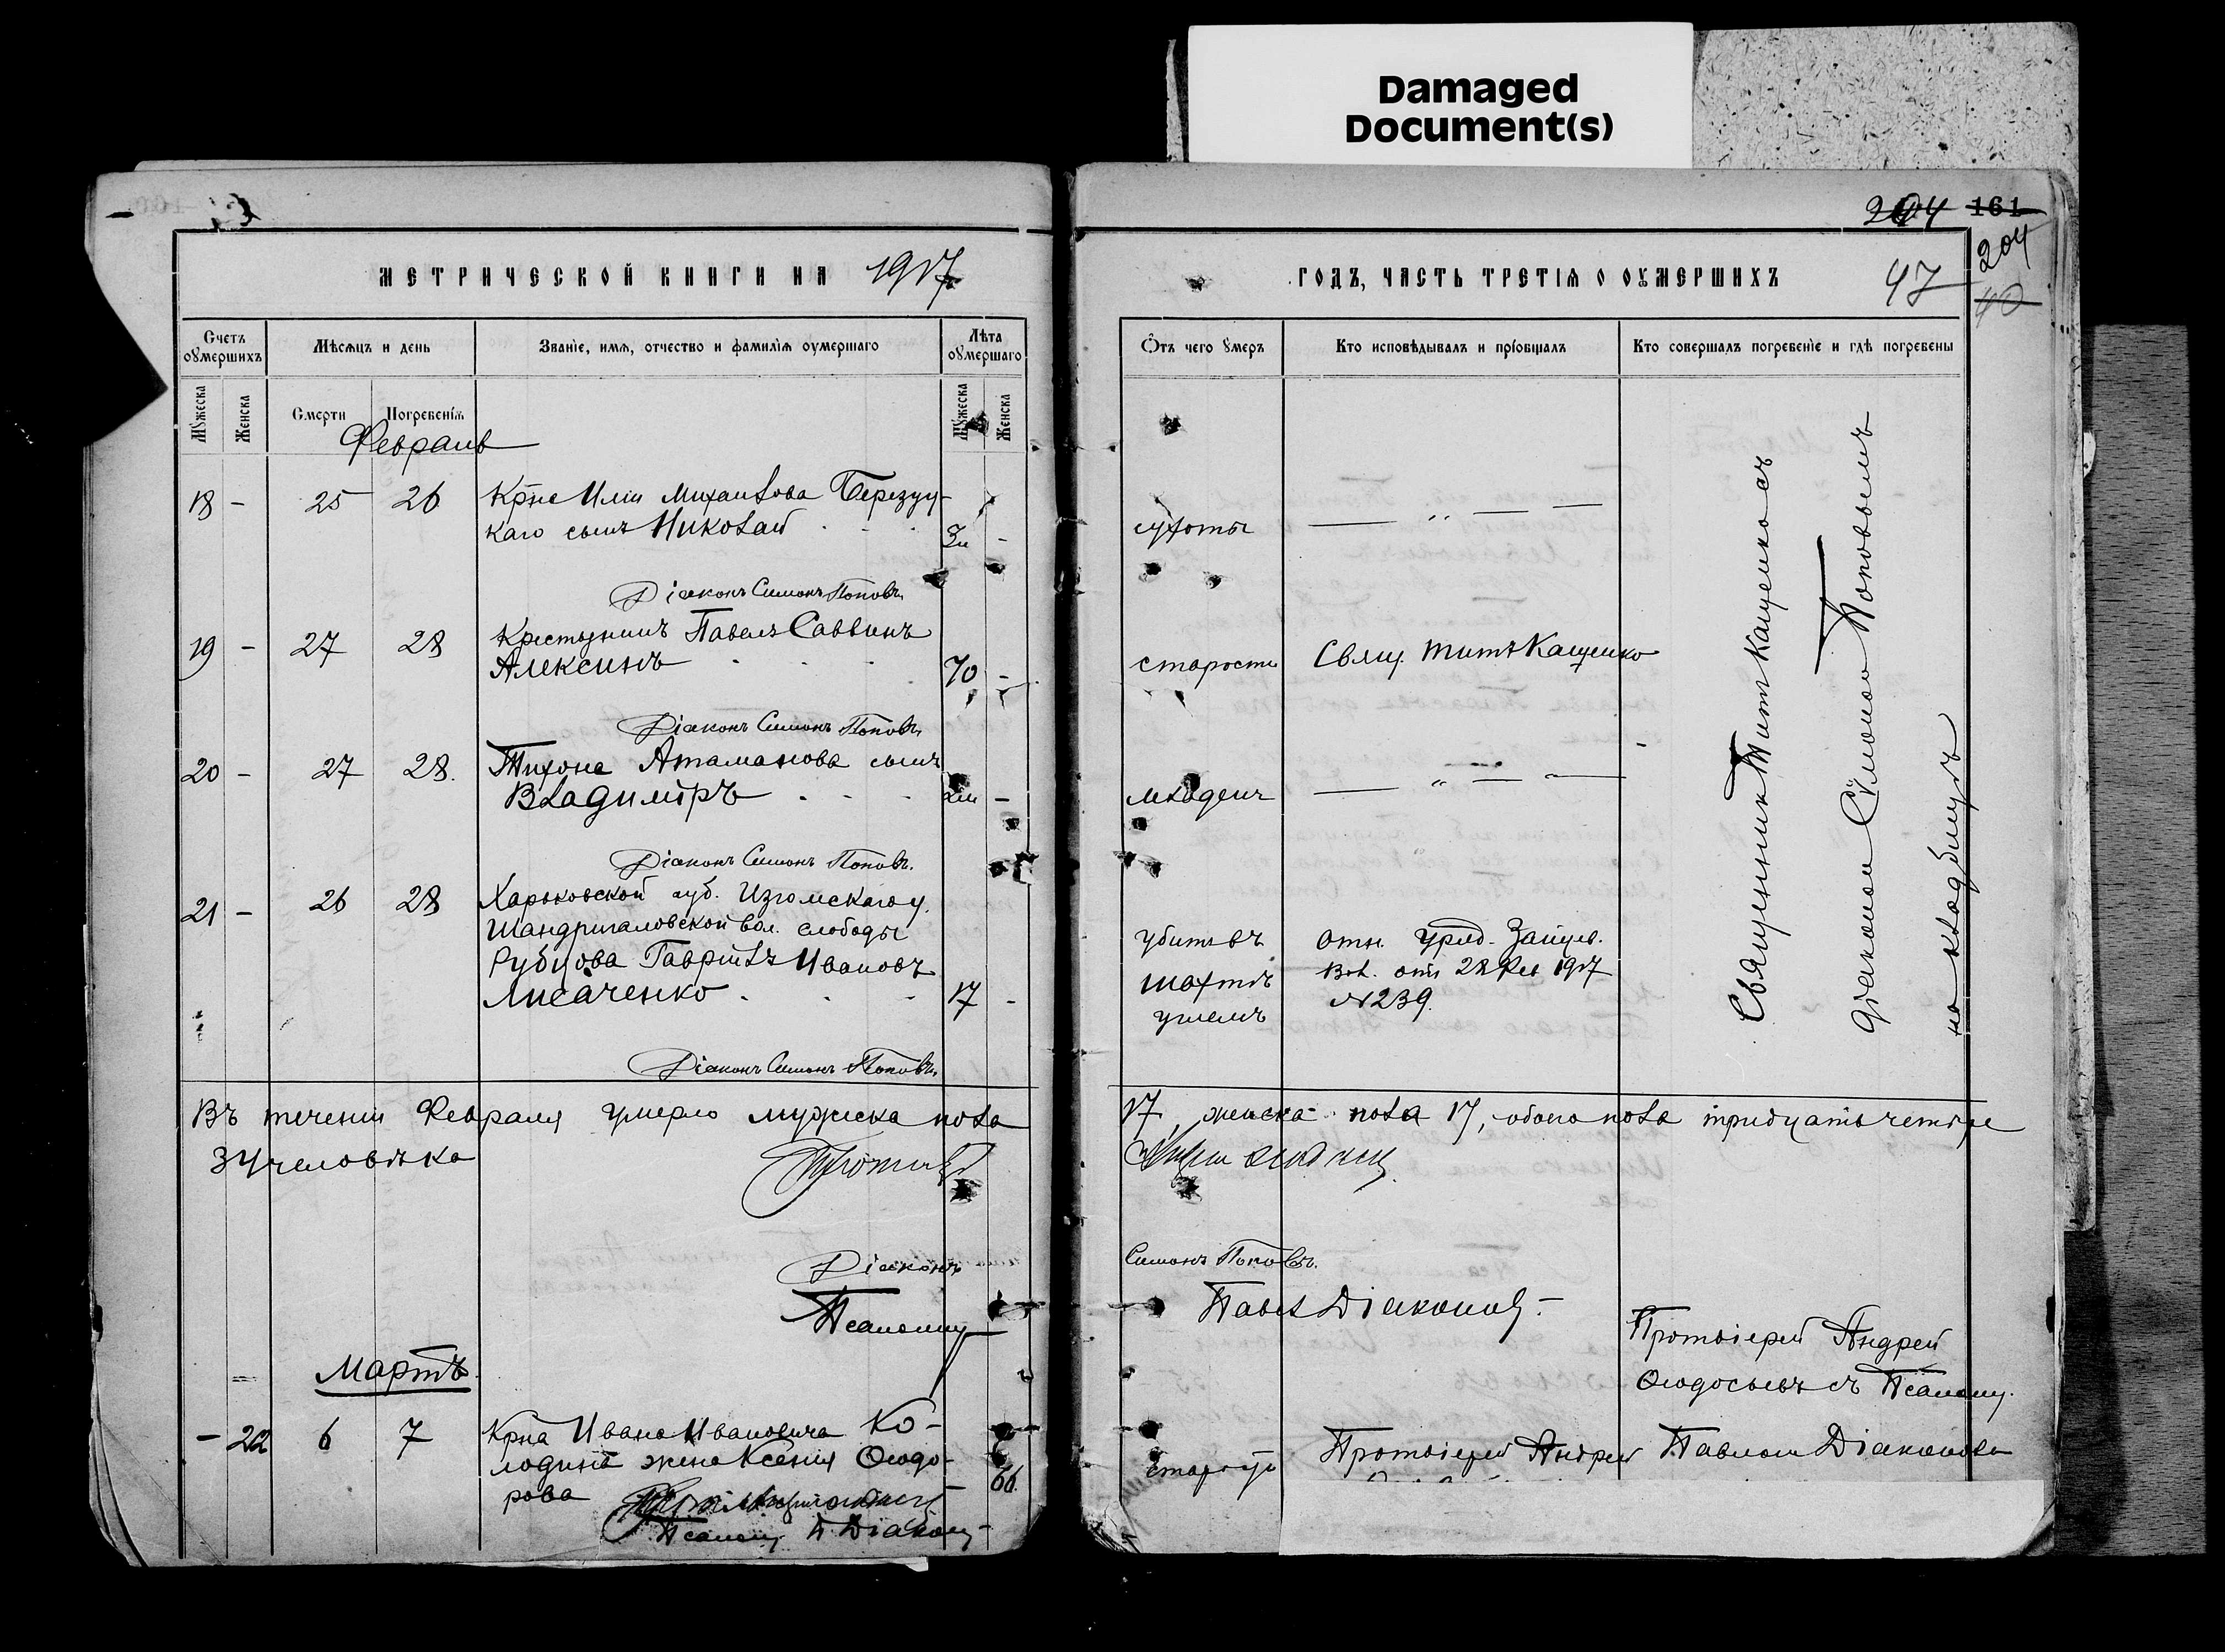 Damaged
Document(s)
204 161
204
47
40
МЕТРИЧЕСКОЙ КНИГИ НА 1917
Счетъ оумершихъ
Мѣсяцъ и день
Званіе, имя, отчество и фамилія оумершаго
Лѣта оумершаго
Мꙋжеска
Женска
Смерти
Погребенія
Мꙋжеска
Женска
Февраль
18 - 25 26 Крне Иліи Михаилова Березуц-
каго сынъ Николай 3м -
Діаконъ Симонъ Поповъ
19 - 27 28 Крестьянинъ Павелъ Саввинъ
Алексинъ 70 -
Діаконъ Симонъ Поповъ
20 - 27 28. Тихона Атаманова сынъ
Владиміръ 2м -
Діаконъ Симонъ Поповъ.
21 - 26 28 Харьковской губ. Изюмскаго у.
Шандриголовской вол. слободы
Рубцова Гавріилъ Ивановъ
Лисаченко 17 -
Діаконъ Симонъ Поповъ
Въ теченіи Февраля умерло мужеска пола
34 человѣка
Діаконъ
Псаломщ
Мартъ.
- 22 6 7 Крна Ивана Ивановича Ко-
лодина жена Ксенія Ѳеодо-
рова 66.
Псаломщ П Діакон
ГОДЪ, ЧАСТЬ ТРЕТІЯ О ОУМЕРШИХЪ
Ѿтъ чего ꙋмеръ
Кто исповѣдывалъ и пріобщалъ
Кто совершалъ погребеніе и гдѣ погребены
сухоты
старости Свящ. Титъ Кащенко
младенч
убитъ въ отн. Уряд. Зайцев.
шахтѣ Вол. отъ 28 Фев 1917
углемъ № 239.
Священникъ Титъ Кащенко съ
діакономъ Сѵмономъ Поповымъ
на кладбищѣ
17, женска пола 17, обоего пола тридцать четыре
Симонъ Поповъ.
Павелъ Діаконов
Протоіерей Андрей
Ѳеодосьевъ съ Псаломщ.
старости Протоіерей Андрей Павломъ Діаконовы